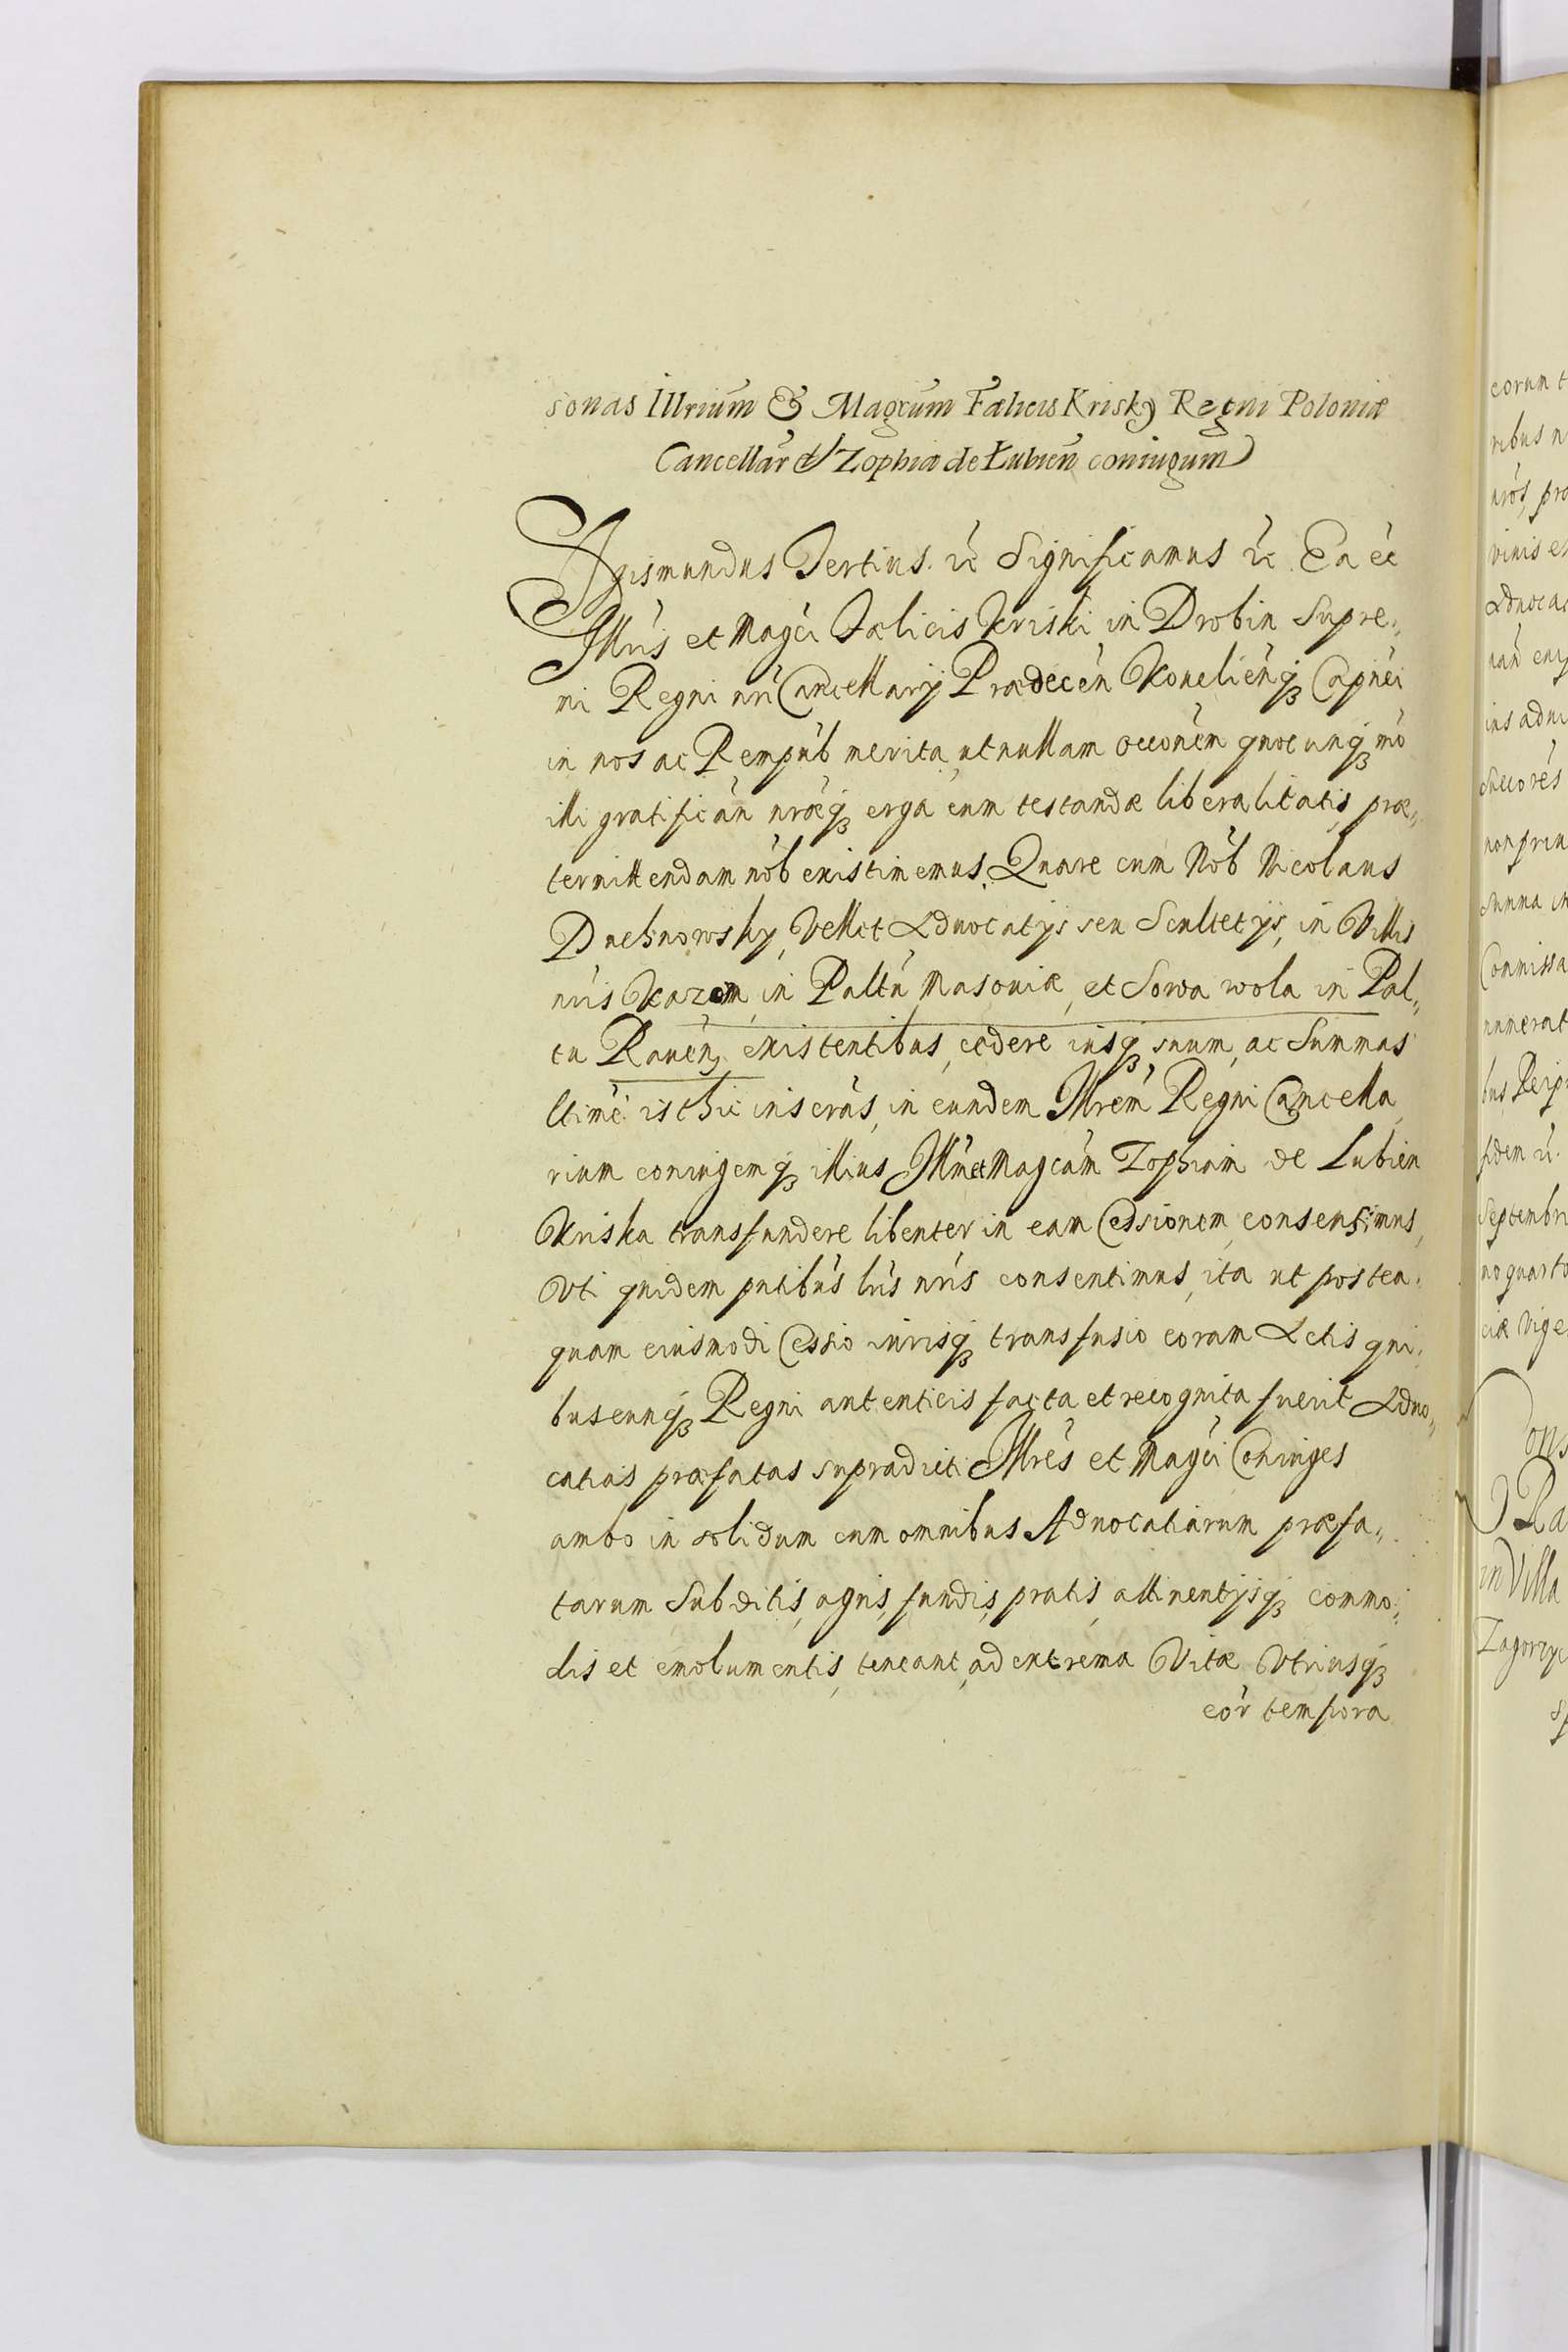 sonas Illriũm & Magcũm Fælicis Krisky Regni Poloniæ
Cancellar̃ et Zophiæ de Łubień coniugum
Sigismundus Tertius. &c Significamus &c. Ea ẽe
Illris et Magci Fælicis Kriski in Drobin Supre„
mi Regni nri Cancellarij Prædecen Koneliénq̃ Capnei
in nos ac Rempub merita, ut nullam occonem quocunq̃ mo
illi gratifican nræq̃ erga eum testandæ liberalitatis præ„
termittendam nob existimemus. Quare cum Nob Nicolaus
Duchnowsky, Vellet Aduocatijs seu Scultetijs, in Villis
nris Kazom, in Paltu Masouiæ, et Sowa wola in Pal„
tu Rauen, existentibus, cedere iusq̃ suum, ac Summas
ltime isthic inscras, in eundem Illrem Regni Cancella
rium coniugemq̃ illius Illm et Magcam Zophiam de Lubien
Kriska transfundere libenter in eam Cessionem consensimus,
Vti quidem pntibus lris nris consentimus, ita ut postea„
quam eiusmodi Cessio iurisq̃ transfusio coram Actis qui„
buscunq̃ Regni autenticis facta et recognita fuerit Aduo„
catias præfatas supradicti Illres et Magci Coniuges
ambo in solidum cum omnibus Aduocatiarum præfa„
tarum Subditis, agris, fundis, pratis, attinentijsq̃ commo„
dis et emolumentis, teneant, ad extrema Vitæ Vtriusq̃
eor tempora
eorum t
ribus n
nros, pro
uinis e
Aduocac
ius adui
Succores
non priu
Summa in
Commissa
numerat
bus Reip
fidem &c.
Septembri
no quarto
ciæ Vige
Cons
Ra
in Villa
Zagorzyc